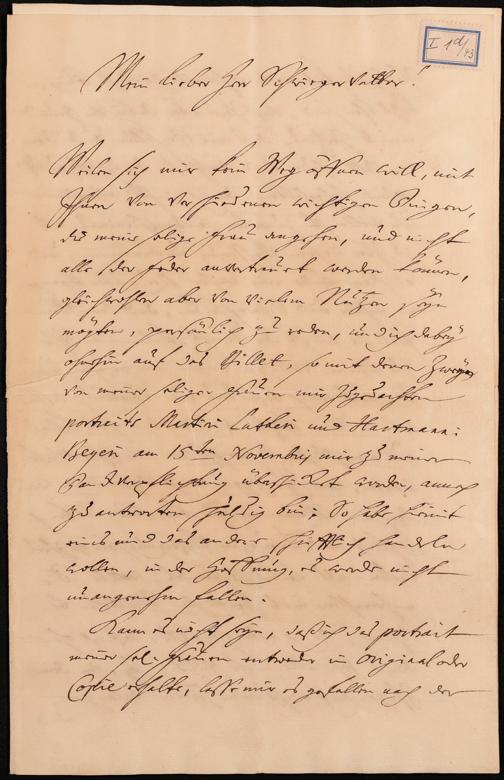 I 1d/43
Mein lieber Herr Schwiegervatter!
Weilen sich mir kein Weg öffnen will, mit
Ihnen von verschiedenen wichtigen Dingen,
die meine selige Frau angehen, und nicht
alle der Feder anvertrauet werden können,
gleichwohlen aber von vielem Nutzen seyn
mögten, persönlich zu reden, und ich dabey
ohnehin auf das Billet, so mit denen zweyen
von meiner seligen Frauen mir zugedachten
portraits Martini Lutheri und Hartmanni
Beyeri am 15ten Novembris mir zu meiner
überschickt worden, annoch
zu antworten schuldig bin; So habe hiemit
eins und das andere schrifftlich handeln
wollen, in der Hoffnung, es werde nicht
unangenehm fallen.
Kann es nicht seyn, daß ich das portrait
meiner sel. Frauen entweder in Original oder
Copie erhalte, lasse mir es gefallen nach der